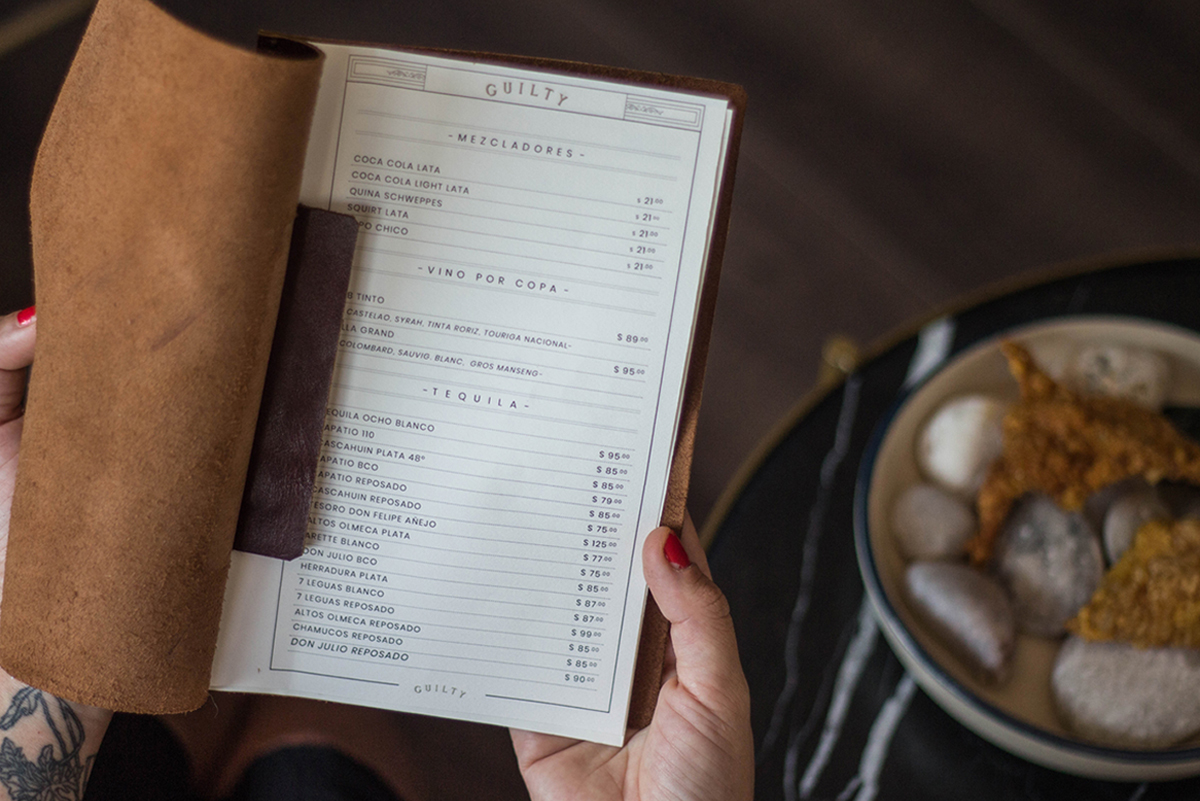 GUILTY
-MEZCLADORES-
COCA COLA LATA $ 21.00
COCA COLA LIGHT LATA $ 21.00
QUINA SCHWEPPES $ 21.00
SQUIRT LATA $ 21.00
PO CHICO $ 21.00
-VINO POR COPA-
TINTO
CASTELAO, SYRAH, TINTA RORIZ, TOURIGA NACIONAL- $ 89.00
LLA GRAND
COLOMBARD, SAUVIG. BLANC, GROS MANSENG- $ 95.00
-TEQUILA-
EQUILA OCHO BLANCO $ 95.00
APATIO 110 $ 85.00
CASCAHUIN PLATA 48° $ 85.00
APATIO BCO $ 79.00
APATIO REPOSADO $ 85.00
CASCAHUIN REPOSADO $ 75.00
TESORO DON FELIPE AÑEJO $ 125.00
ALTOS OLMECA PLATA $ 77.00
ARETTE BLANCO $ 75.00
DON JULIO BCO $ 85.00
HERRADURA PLATA $ 87.00
7 LEGUAS BLANCO $ 87.00
7 LEGUAS REPOSADO $ 99.00
ALTOS OLMECA REPOSADO $ 85.00
CHAMUCOS REPOSADO $ 85.00
DON JULIO REPOSADO $ 90.00
GUILTY